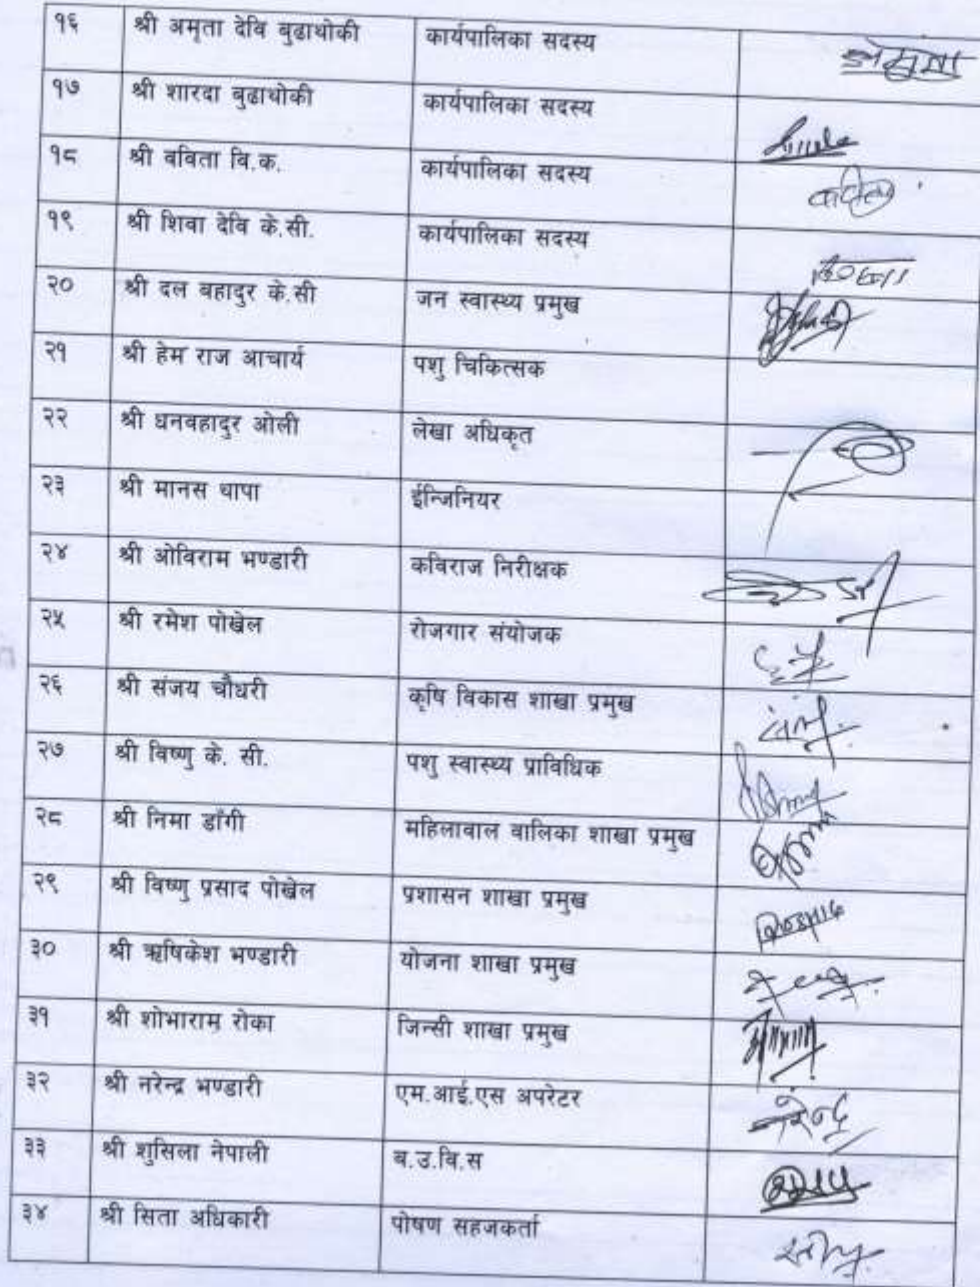 १६ श्री अमृता देवि बुढाथोकी कार्यपालिका सदस्य
१७ श्री शारदा बुढाथोकी कार्यपालिका सदस्य
१८ श्री वविता वि.क. कार्यपालिका सदस्य
१९ श्री शिवा देवि के.सी. कार्यपालिका सदस्य
२० श्री दल बहादुर के.सी जन स्वास्थ्य प्रमुख
२१ श्री हेम राज आचार्य पशु चिकित्सक
२२ श्री धनवहादुर ओली लेखा अधिकृत
२३ श्री मानस थापा ईन्जिनियर
२४ श्री ओविराम भण्डारी कविराज निरीक्षक
२५ श्री रमेश पोखेल रोजगार संयोजक
२६ श्री संजय चौधरी कृषि विकास शाखा प्रमुख
२७ श्री विष्णु के. सी. पशु स्वास्थ्य प्राविधिक
२८ श्री निमा डाँगी महिलावाल वालिका शाखा प्रमुख
२९ श्री विष्णु प्रसाद पोखेल प्रशासन शाखा प्रमुख
३० श्री ऋषिकेश भण्डारी योजना शाखा प्रमुख
३१ श्री शोभाराम रोका जिन्सी शाखा प्रमुख
३२ श्री नरेन्द्र भण्डारी एम.आई.एस अपरेटर नरेन्द्र
३३ श्री शुसिला नेपाली ब.उ.वि.स
३४ श्री सिता अधिकारी पोषण सहजकर्ता